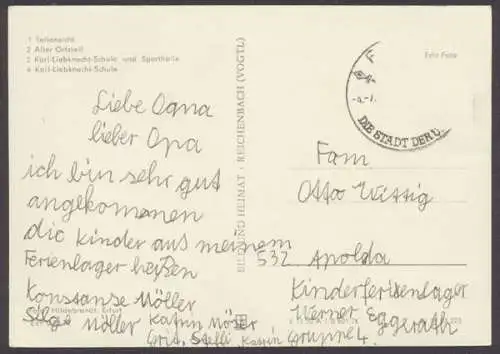 1 Teilansicht
2 Alter Ortsteil
3 Karl-Liebknecht-Schule und Sporthalle
4 Karl-Liebknecht-Schule
Liebe Oma
lieber Opa
ich bin sehr gut
angekommen
die Kinder aus meinem
Ferienlager heißen
Konstanse Möller
Silge Möller Katrin Möser
Grit, Steffi Katrin Gruppe 4
Hildebrandt, Erfurt
BILD UND HEIMAT · REICHENBACH (VOGTL)
Echt Foto
DIE STADT DER
Fam
Otto Wittig
532 Apolda
Kinderferienlager
Werner Eggerath